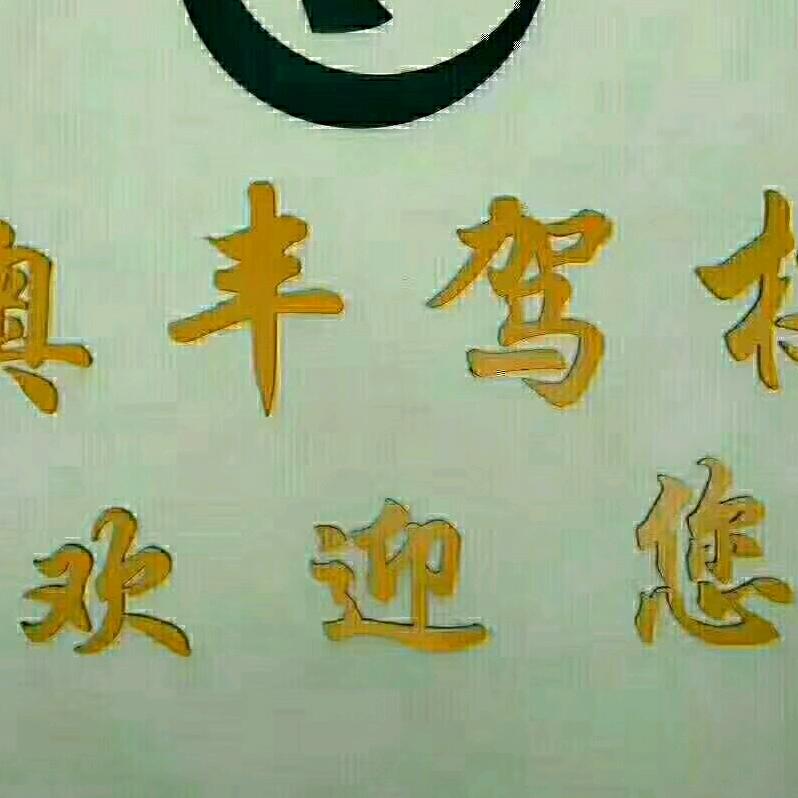 丰驾校
欢迎您